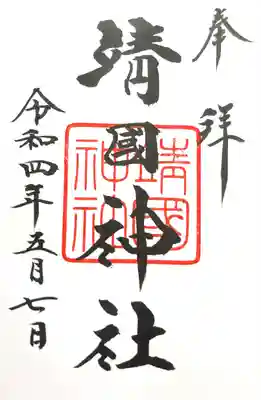 奉拝
靖國神社
靖國神社
令和四年五月七日